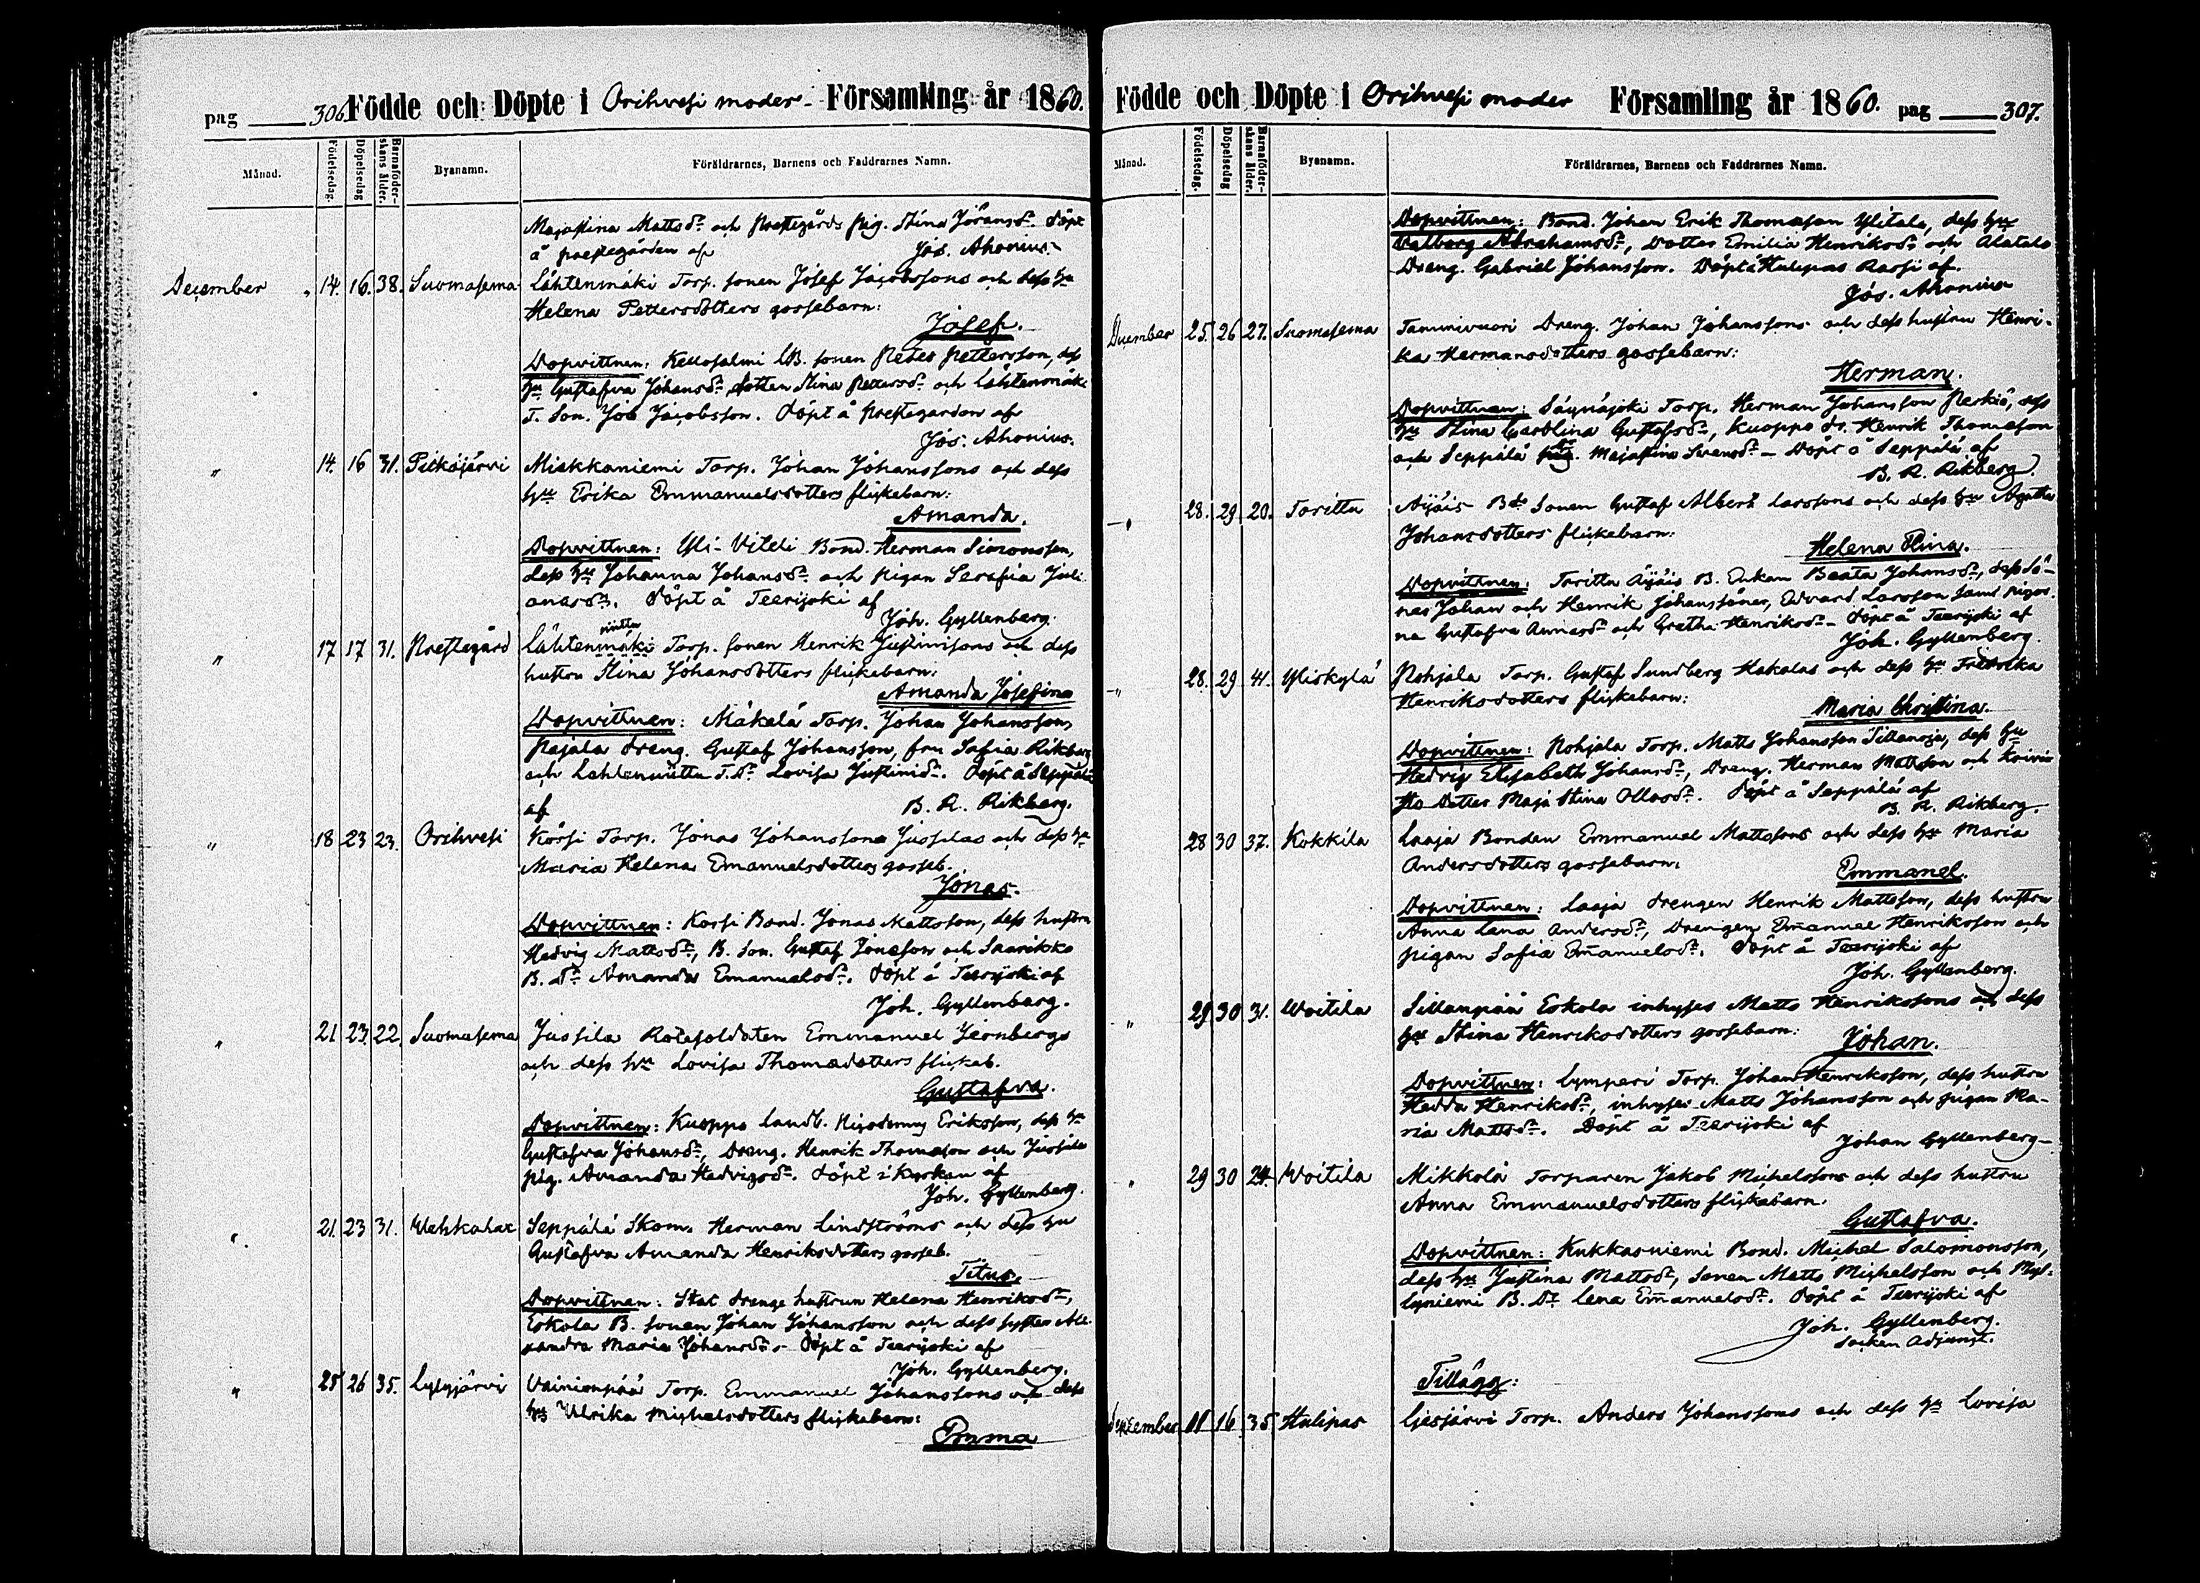 pag 306. Födde och Döpte i Orihvesi moder- Församling år 1860.
Månad. Födelsedag. Döpelsedag Barnaföder-skans ålder. Byanamn. Föräldrarnes, Barnens och Faddrarnes Namn.
Majastina Mattsdr och Prestegårds pig. Stina Jöransdr. Döpt
å prestegården af Jos. Ahonius.
December 14. 16. 38. Suomasema Lähtenmäki Torp. sonen Josef Jacobssons och dess hu
Helena Pettersdotters gossebarn:
Josef.
Dopvittnen: Kellosalmi LB. sonen Peter Pettersson, dess
hu Gustafva Johansdr dotten Stina Pettersdr och Lähtenmäki
T. Son. Job Jacobsson. Döpt å prestegården af
Jos. Ahonius.
" 14. 16 31. Pitkäjärvi Miekkaniemi Torp. Johan Johanssons och dess
hu Erika Emmanuelsdotters flickebarn:
Amanda.
Dopvittnen: Yli-Vileli Bond. Herman Simonsson,
dess hu Johanna Johansdr och pigan Serafia Juli-
anasdr. Döpt å Teerijoki af
Joh. Gyllenberg.
" 17 17 31. Prestegård Lähtenmäki niitte Torp. sonen Henrik Justinissons och dess
hustru Stina Johansdotters flickebarn:
Amanda Josefina
Dopvittnen: Mäkelä Torp. Johan Johansson,
Pajala dreng. Gustaf Johansson, fru Safia Rikberg
och Lähtenniitte T.dr Lovisa Justinidr. Döpt å Seppälä
af B. R. Rikberg.
" 18 23 23. Orihvesi Körsi Torp. Jonas Johanssons Jussilas och dess hu
Maria Helena Emanuelsdotters gosseb.
Jonas.
Dopvittnen: Korsi Bond. Jonas Mattsson, dess hustru
Hedvig Mattsdr, B. Son. Gustaf Jonasson och Saarikko
B. dr Amanda Emanuelsdr. Döpt å Teerijoki af
Joh. Gyllenberg.
" 21 23. 22. Suomasema Jussila Rotesoldaten Emmanuel Jernbergs
och dess hu Lovisa Thomasdotters flickeb.
Gustafva.
Dopvittnen: Kuoppa Landb. Nicodemus Eriksson, dess hu
Gustafva Johansdr, Dreng. Henrik Thomasson och Jussila
pig. Amanda Hedvigsdr. Döpt i Kyrkan af
Joh. Gyllenberg.
" 21. 23 31. Wehkalax Seppälä Skom. Herman Lindströms och dess hu
Gustafva Amanda Henriksdotters gosseb.
Titus.
Dopvittnen: Stat drengs hustrun Helena Henriksdr,
Eskola B. sonen Johan Johansson och dess syster Ale-
xandra Maria Johansdr - Döpt å Teerijoki af
Joh. Gyllenberg.
" 25 26 35. Lylyjärvi Vainionpää Torp. Emmanuel Johanssons och dess
hu Ulrika Michelsdotters flickebarn:
Emma
Födde och Döpte i Orihvesi moder Församling år 1860. pag 307.
Månad. Födelsedag. Döpelsedag Barnaföder-skans ålder. Byanamn. Föräldrarnes, Barnens och Faddrarnes Namn.
Dopvittnen: Bond. Johan Erik Thomasson Ylitalo, dess hu
Valborg Abrahamsdr, Dotter Emilia Henriksdr och Alatalo
Dreng. Gabriel Johansson. Döpt å Hulipas Rossi af
Jos. Ahonius
December 25. 26 27. Suomasema Tammivuori Dreng. Johan Johanssons och dess hustru Henri-
ka Hermansdotters gossebarn:
Herman.
Dopvittnen: Säynäjoki Torp. Herman Johansson Perkiö, dess
hu Stina Carolina Gustafsdr, Kuoppa dr. Henrik Thomasson
och Seppälä pig. Majastina Svensdr - Döpt å Seppälä af
B. R. Rikberg.
" 28. 29 20. Toritta Äijäis Bds Sonen Gustaf Albert Larssons och dess hu Agatha
Johansdotters flickebarn:
Helena Stina.
Dopvittnen: Toritta Äijäis B. Enkan Beata Johansdr, dess sö-
ner Johan och Henrik Johanssöner, Edvard Larsson samt pigor-
na Gustafva Annasdr och Gretha Henriksdr - Döpt å Teerijoki af
Joh. Gyllenberg.
" 28. 29 41. Yliskylä Pohjala Torp. Gustaf Sundberg Hakalas och dess hu Fredrika
Henriksdotters flickebarn:
Maria Christina.
Dopvittnen: Pohjala Torp. Matts Johansson Tillanoja, dess hu
Hedvig Elisabeth Johansdr, Dreng. Herman Mattsson och
dotter Maja Stina Ollasdr. Döpt å Seppälä af
B. R. Rikberg
28 30 37. Kokkila Laaja Bonden Emmanuel Mattssons och dess hu Maria
Andersdotters gossebarn:
Emmanel.
Dopvittnen: Laaja drengen Henrik Mattsson, dess hustru
Anna Lena Andersdr, Drengen Emanuel Henriksson och
pigan Safia Emanuelsdr. Döpt å Teerijoki af
Joh. Gyllenberg.
" 29 30 31. Woitila Sillanpää Eskola inhyses Matts Henrikssons och dess
hu Stina Henriksdotters gossebarn:
Johan.
Dopvittnen: Lympäri Torp. Johan Henriksson, dess hustru
Hedda Henriksdr, inhyses Matts Johansson och pigan Ma-
ria Mattsdr. Döpt å Teerijoki af
Johan Gyllenberg-
" 29 30 24. Woitila Mikkola Torparen Jakob Michelssons och dess hustru
Anna Emmanuelsdotters flickebarn.
Gustafva.
Dopvittnen: Kukkasniemi Bond. Michel Salomonsson,
dess hu Justina Mattsdr, Sonen Matts Michelsson och Myl-
lyniemi B. Dr Lena Emanuelsdr. Döpt å Teerijoki af
Joh. Gyllenberg.
Socken Adjunct.
Tillägg:
September 11 16 35 Hulipas Liesjärvi Torp. Anders Johanssons och dess hu Lovisa